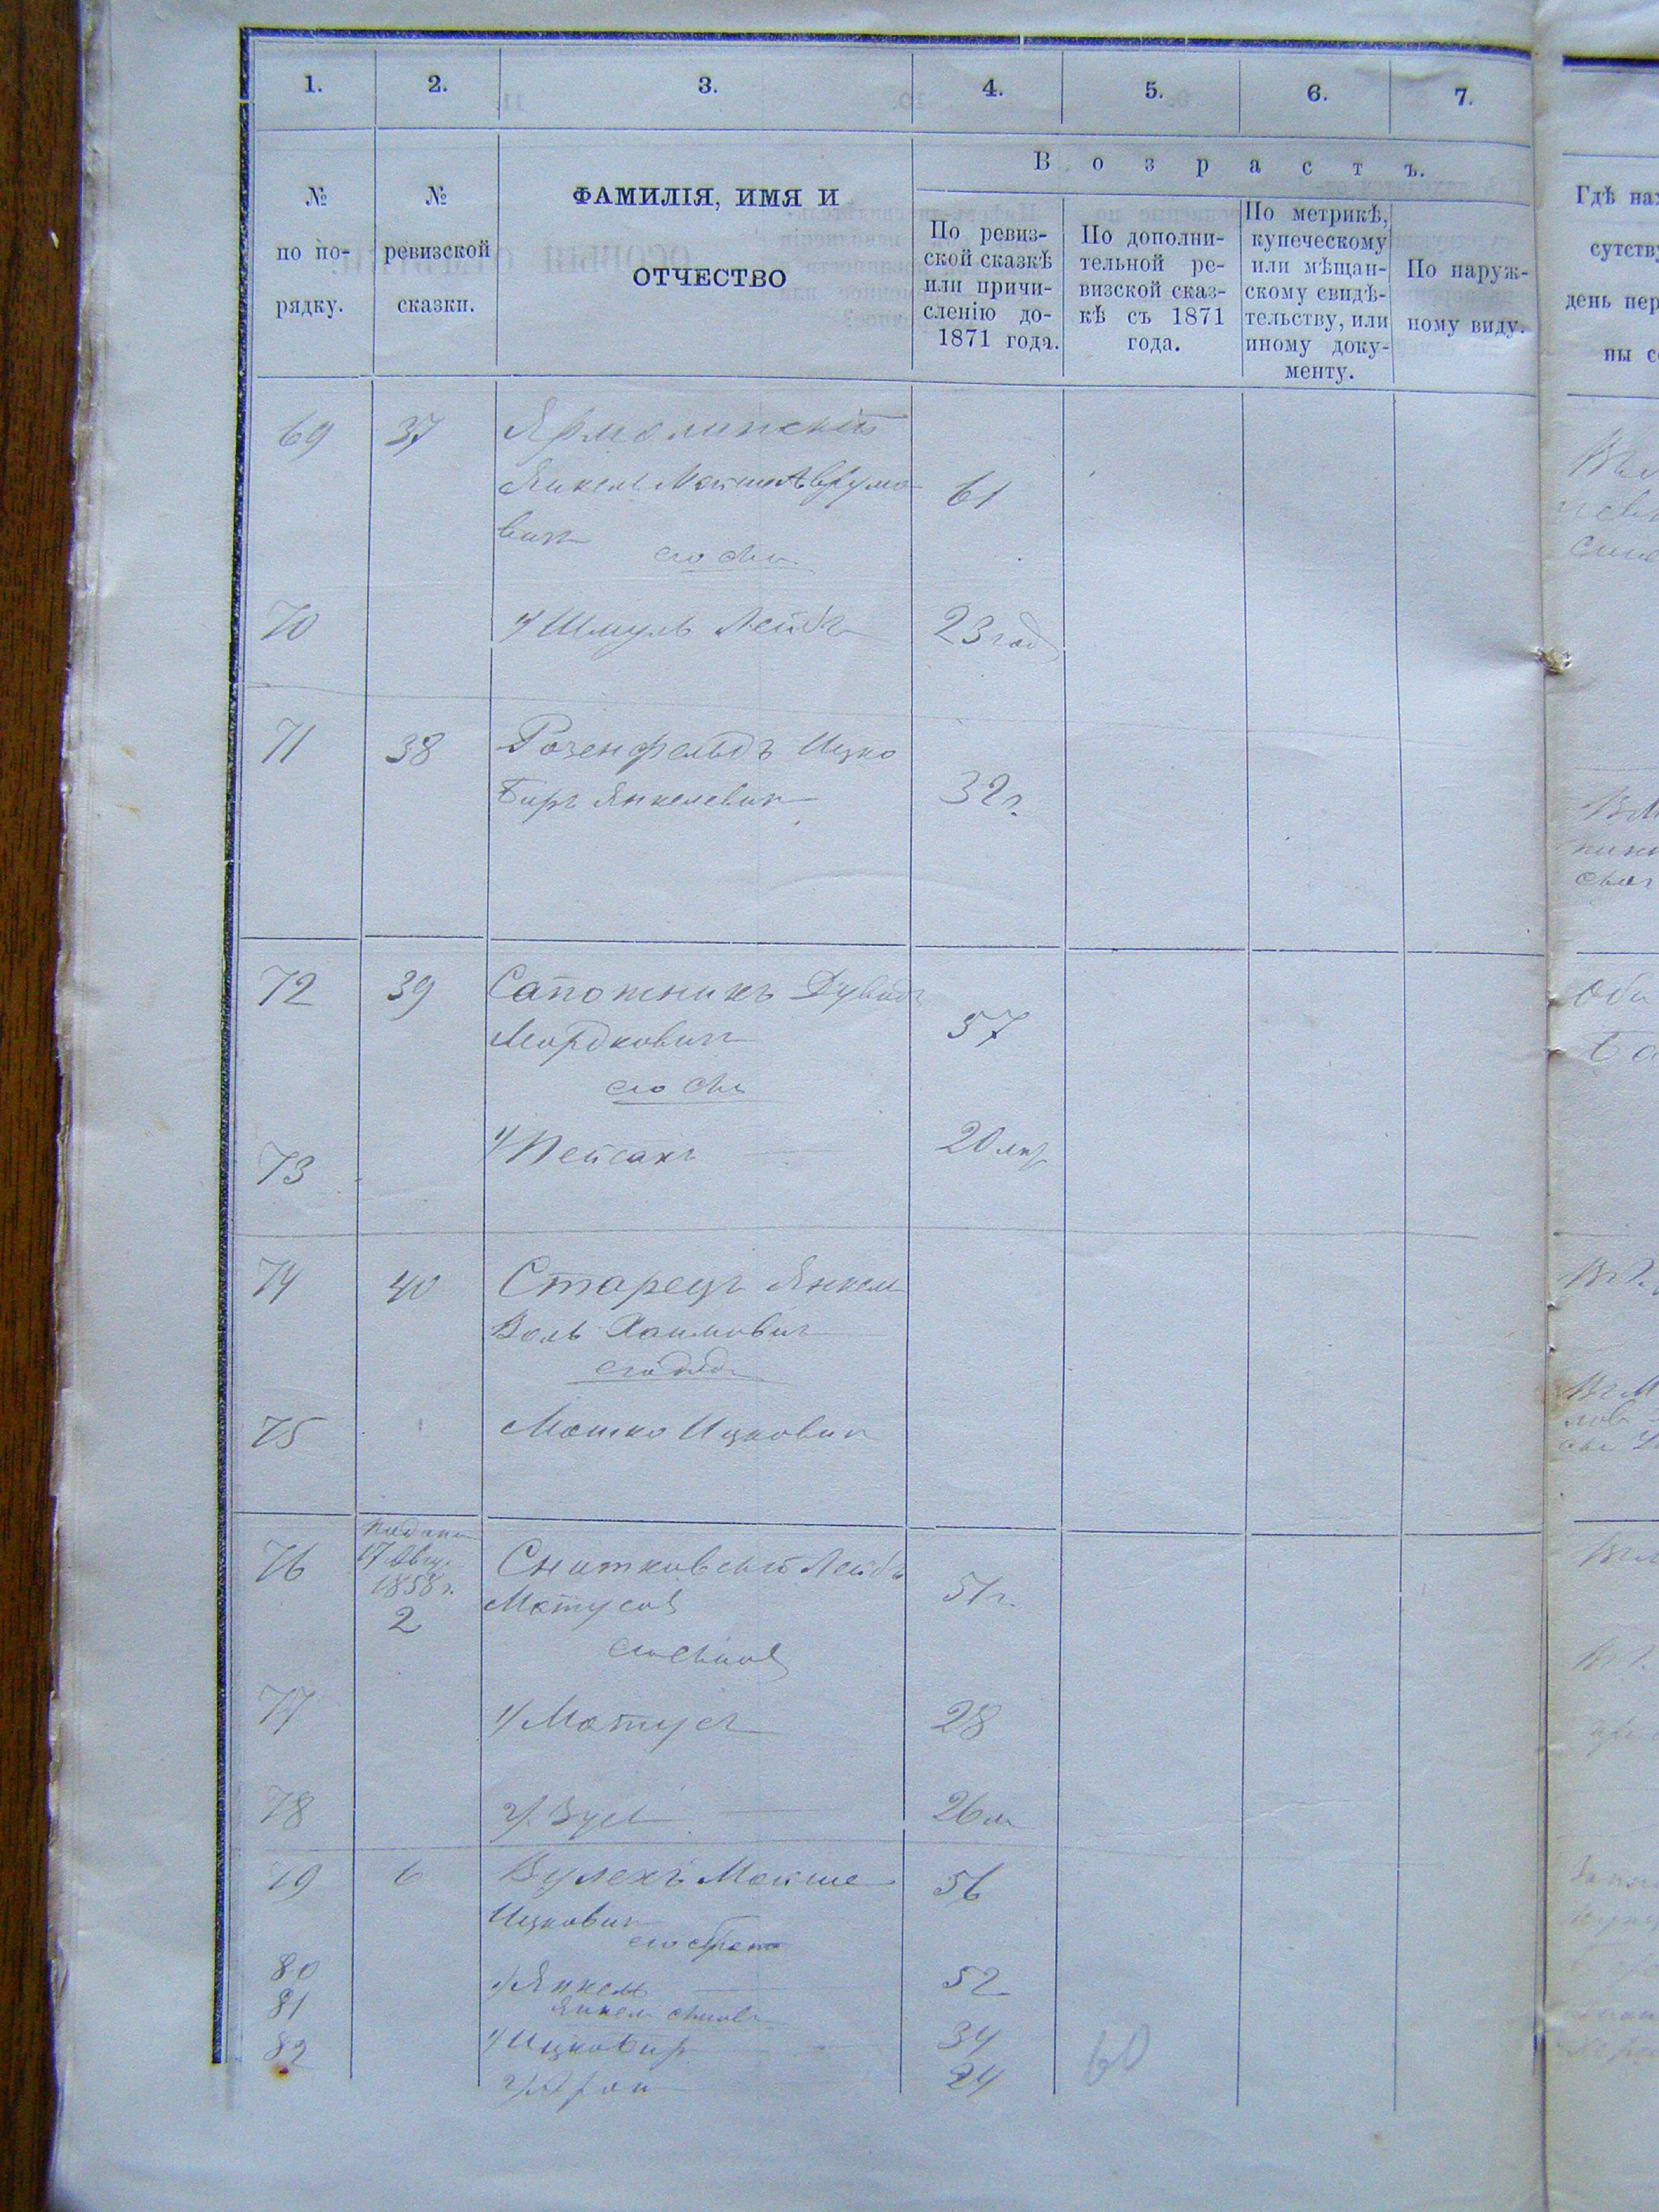 1. 2. 3. 4. 5. 6. 7.
В о з р а с т ъ.
№
по по-
рядку.
№
ревизской
сказки.
ФАМИЛІЯ, ИМЯ И
ОТЧЕСТВО
По ревиз-
ской сказкѣ
или причи-
сленію до-
1871 года.
По дополни-
тельной ре-
визской сказ-
кѣ съ 1871
года.
По метрикѣ,
купеческому
или мѣщан-
скому свидѣ-
тельству, или
иному доку-
менту.
По наруж-
ному виду.
Гдѣ нах
сутству
день пер
ны с
69 37 Ярмолинскій
Янкель Мойше Аврумо 61
вичъ
его сынъ
70 1/ Шмуль Лейбъ 23 год
71 38 Розенфельдъ Ицко
Беръ Янкелевичъ 32 г.
72 39 Сапожникъ Дувидъ
Мордковичъ 57
его сынъ
73 1/ Пейсахъ 20 лѣт
74 40 Старецъ Янкель
Воль Хаимовичъ
его дядя
75 Мошко Ицковичъ
76 17 Авгу. 1858 г. 2 Снитковскій Лейба
Матусов 51 г.
его сынов
77 1/ Матусъ 28
78 2/ Зусь 26 л
79 6 Вулехъ Мойше 56
Ицковичъ
его братъ
80 1/ Янкель 52
81 Янкеля сыновья
82 1/ Ицко Беръ 34
2/ Аронъ 24
60